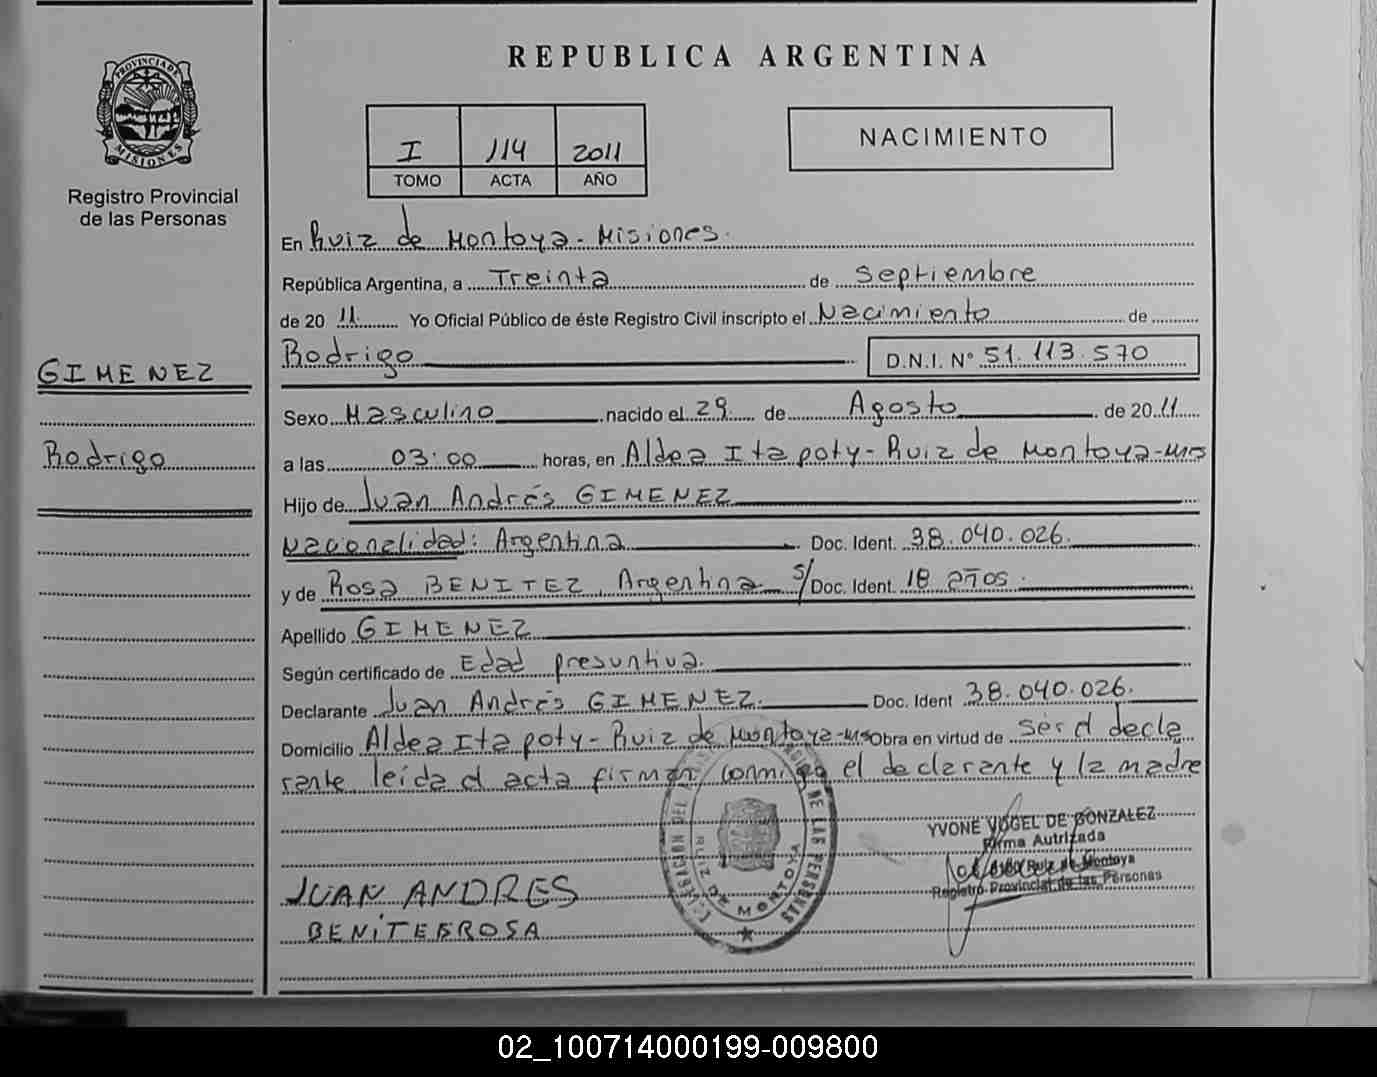 REPUBLICA ARGENTINA
PROVINCIA DE
MISIONES
Registro Provincial
de las Personas
I 114 2011
TOMO ACTA AÑO
NACIMIENTO
En Ruiz de Montoya - Misiones.
República Argentina, a Treinta de Septiembre
de 20 11 Yo Oficial Público de éste Registro Civil inscripto el Nacimiento de
Rodrigo D.N.I. N° 51.113.570
GIMENEZ
Rodrigo
Sexo Masculino nacido el 29 de Agosto de 20 11
a las 03:00 horas, en Aldea Ita poty - Ruiz de Montoya - Ms
Hijo de Juan Andrés GIMENEZ
Nacionalidad: Argentina Doc. Ident. 38.040.026.
y de Rosa BENITEZ, Argentina s/ Doc. Ident. 18 años.
Apellido GIMENEZ
Según certificado de Edad presuntiva.
Declarante Juan Andrés GIMENEZ. Doc. Ident 38.040.026.
Domicilio Aldea Ita poty - Ruiz de Montoya - Ms Obra en virtud de ser d decla
rante leída d acta firman conmigo el declarante y la madre
YVONE VOGEL DE GONZALEZ
Firma Autrizada
Ruiz de Montoya
Registro Provincial de las Personas
DE LAS PERSONAS
RUIZ DE MONTOYA
JUAN ANDRES
BENITEBROSA
02_100714000199-009800